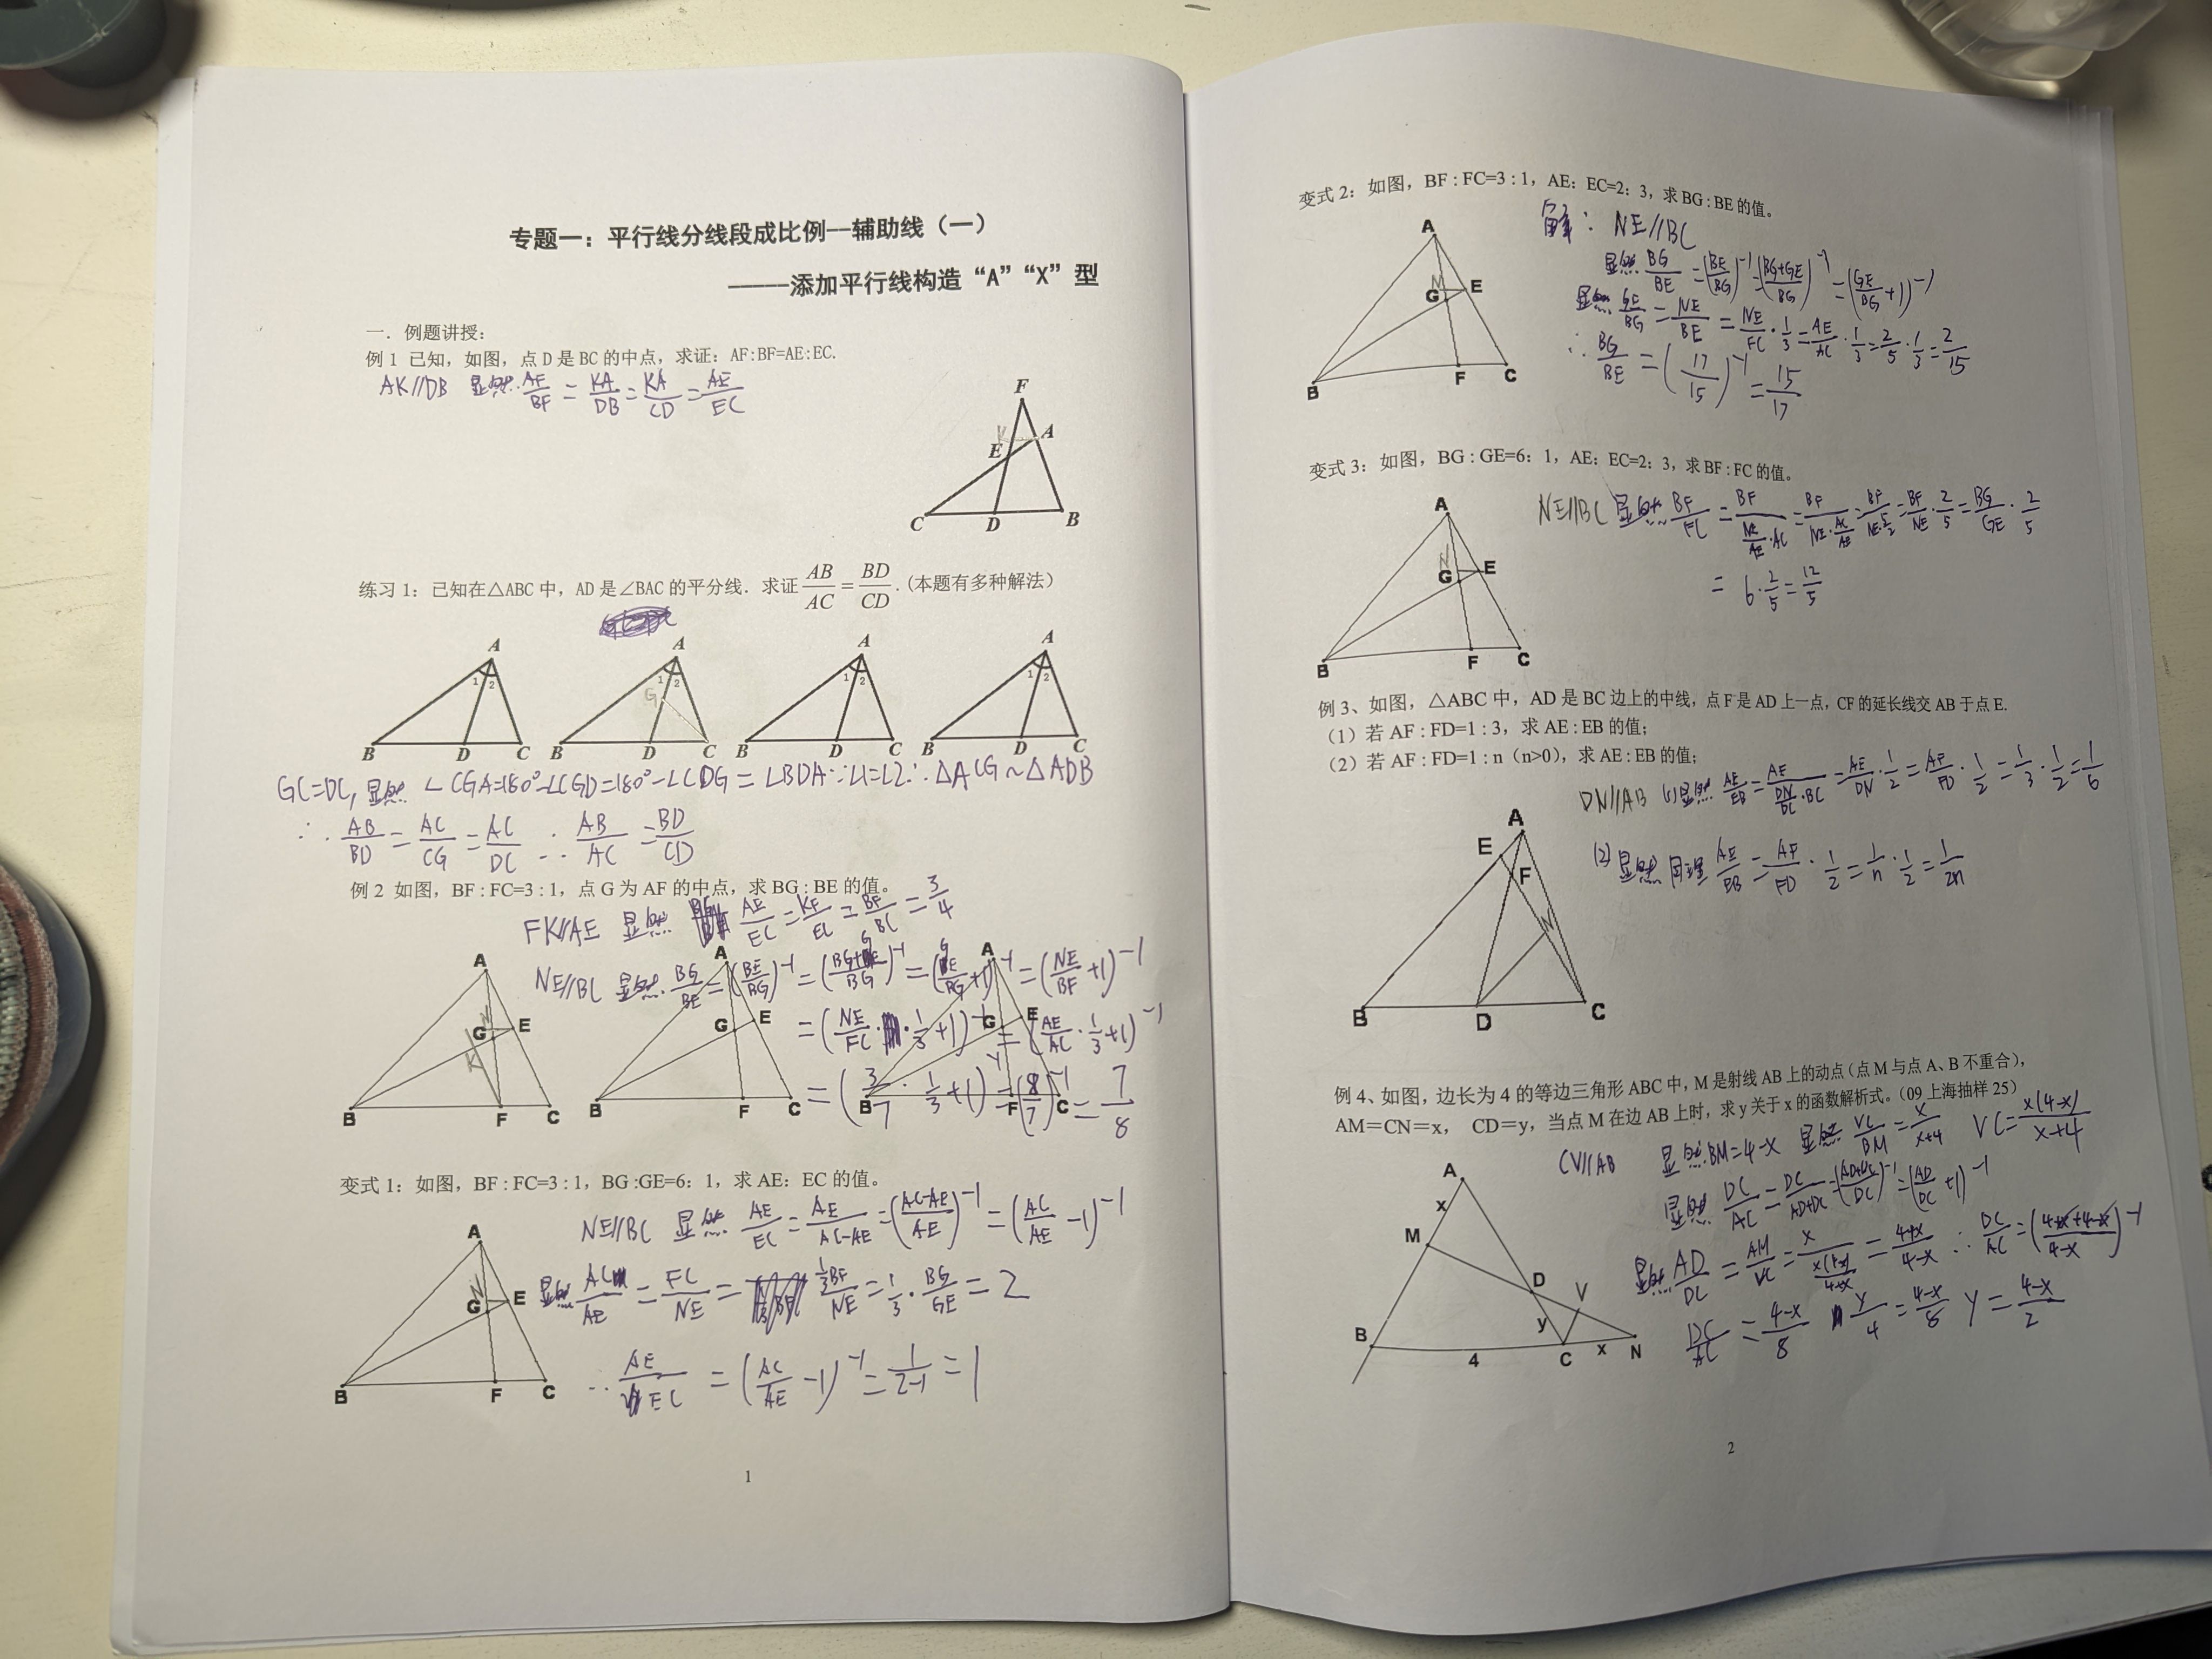 专题一：平行线分线段成比例--辅助线（一）
-----添加平行线构造“A”“X”型
一．例题讲授：
例 1 已知，如图，点 D 是 BC 的中点，求证：AF:BF=AE:EC.
AK//DB 显然 AF/BF = KA/DB = KA/CD = AE/EC
F
K
A
E
C D B
练习 1：已知在△ABC 中，AD 是∠BAC 的平分线．求证 AB/AC = BD/CD .（本题有多种解法）
A A A A
1 2 1 2 1 2 1 2
G
B D C B D C B D C B D C
GC=DC, 显然 ∠CGA=180°-∠CGD=180°-∠CDG=∠BDA ∵∠1=∠2 ∴△ACG~△ADB
∴ AB/BD = AC/CG = AC/DC ∴ AB/AC = BD/CD
例 2 如图，BF : FC=3 : 1，点 G 为 AF 的中点，求 BG : BE 的值。
FK//AE 显然 AE/EC = KF/EC = BF/BC = 3/4
NE//BC 显然 BG/BE = (BE/BG)^-1 = (BG+GE/BG)^-1 = (GE/BG+1)^-1 = (NE/BF+1)^-1
= (NE/FC · 1/3+1)^-1 = (AE/AC · 1/3+1)^-1
= (3/7 · 1/3+1)^-1 = (8/7)^-1 = 7/8
A A A
N
G E G E G E
K
B F C B F C B F C
变式 1：如图，BF : FC=3 : 1，BG :GE=6：1，求 AE：EC 的值。
NE//BC 显然 AE/EC = AE/AC-AE = (AC-AE/AE)^-1 = (AC/AE -1)^-1
显然 AC/AE = FC/NE = 1/3BF/NE = 1/3 · BG/GE = 2
∴ AE/EC = (AC/AE -1)^-1 = 1/2-1 = 1
A
N
G E
B F C
1
变式 2：如图，BF : FC=3 : 1，AE：EC=2：3，求 BG : BE 的值。
解：NE//BC
显然 BG/BE = (BE/BG)^-1 = (BG+GE/BG)^-1 = (GE/BG+1)^-1
显然 GE/BG = NE/BE = NE/FC · 1/3 = AE/AC · 1/3 = 2/5 · 1/3 = 2/15
∴ BG/BE = (17/15)^-1 = 15/17
A
N
G E
B F C
变式 3：如图，BG : GE=6：1，AE：EC=2：3，求 BF : FC 的值。
NE//BC 显然 BF/FC = BF/NE/AE·AC = BF/NE·AC/AE = BF/NE·5/2 = BF/NE · 2/5 = BG/GE · 2/5
= 6 · 2/5 = 12/5
A
N
G E
B F C
例 3、如图，△ABC 中，AD 是 BC 边上的中线，点 F 是 AD 上一点，CF 的延长线交 AB 于点 E.
（1）若 AF : FD=1 : 3，求 AE : EB 的值；
（2）若 AF : FD=1 : n（n>0），求 AE : EB 的值；
DN//AB (1)显然 AE/EB = AE/DN/DC·BC = AE/DN · 1/2 = AF/FD · 1/2 = 1/3 · 1/2 = 1/6
(2) 显然 同理 AE/EB = AF/FD · 1/2 = 1/n · 1/2 = 1/2n
A
E
F
N
B D C
例 4、如图，边长为 4 的等边三角形 ABC 中，M 是射线 AB 上的动点（点 M 与点 A、B 不重合），
AM＝CN＝x， CD＝y，当点 M 在边 AB 上时，求 y 关于 x 的函数解析式。（09 上海抽样 25）
CV//AB 显然 BM=4-x 显然 VC/BM = x/x+4 VC = x(4-x)/x+4
显然 DC/AC = DC/AD+DC = (AD+DC/DC)^-1 = (AD/DC+1)^-1
显然 AD/DC = AM/VC = x/x(4-x)/4+x = 4+x/4-x ∴ DC/AC = (4+x+4-x/4-x)^-1
DC/AC = 4-x/8 y/4 = 4-x/8 y = 4-x/2
A
x
M
D V
y
B 4 C x N
2